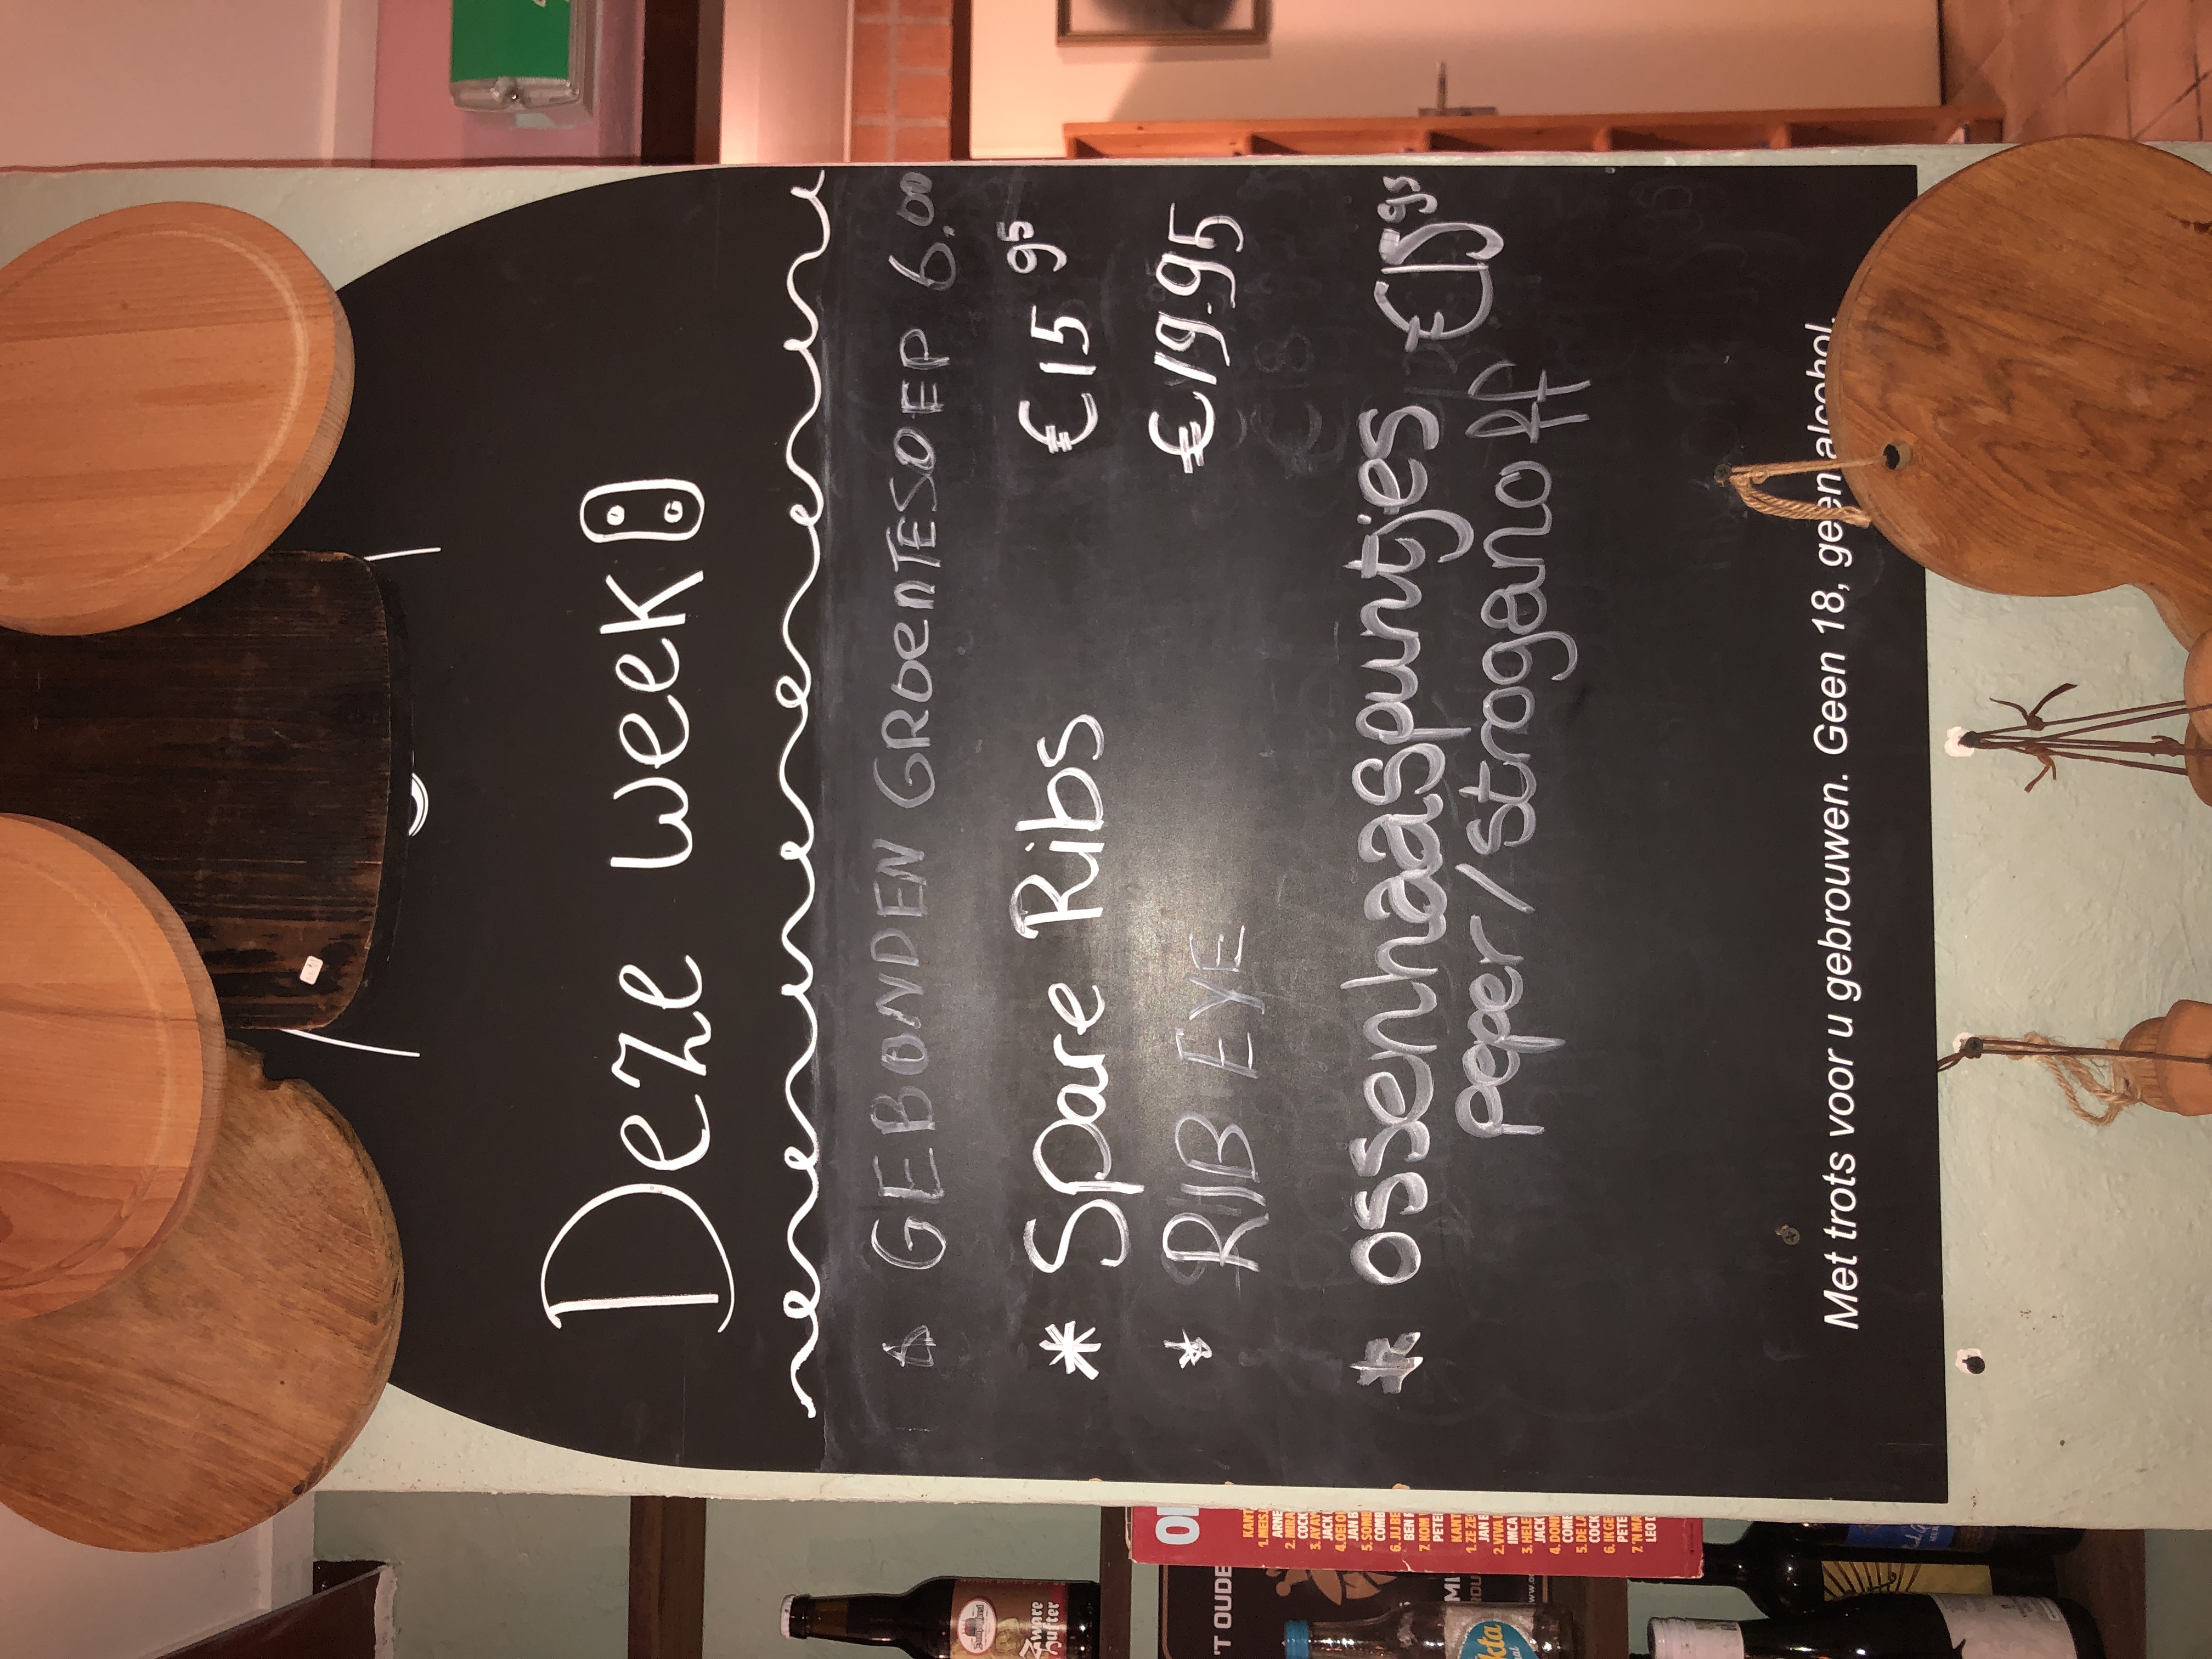 Deze week
GEBONDEN GROENTESOEP 6.00
* Spare Ribs €15 95
* RIB EYE €19.95
* ossenhaaspuntjes €15 95
peper / stroganoff
Met trots voor u gebrouwen. Geen 18, geen alcohol.
'T OUDE
Zware